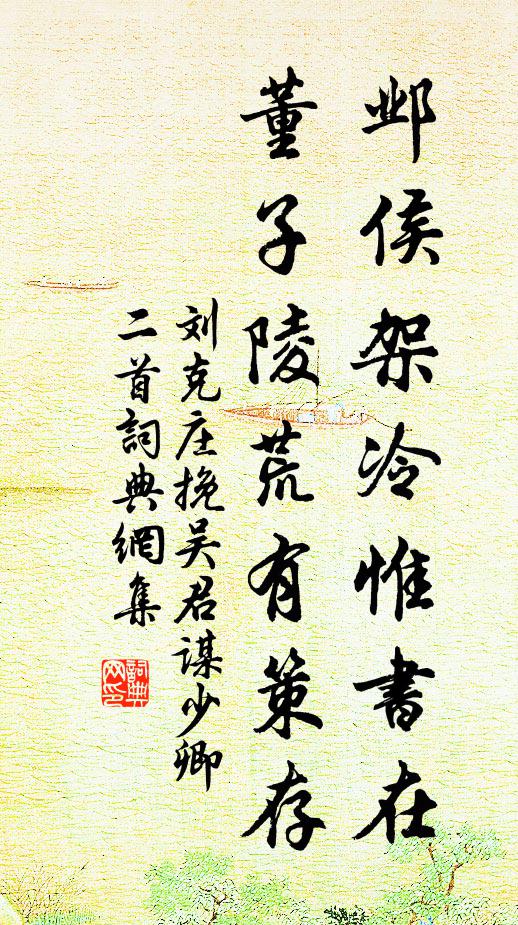 邺侯架冷惟書在
董子陵荒有策存
刘克庄挽吴君謀少卿
二首詞典網集
詞典网印